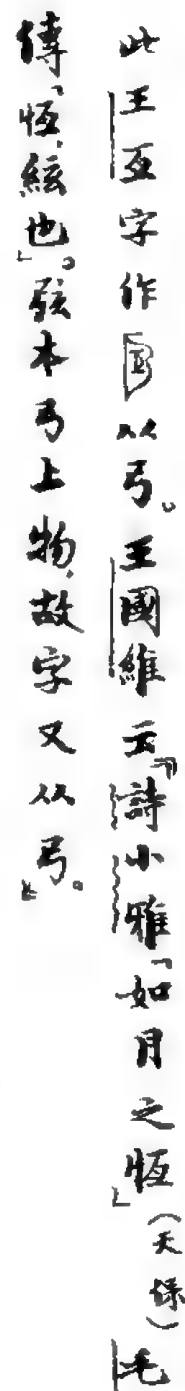 此王亙字作从弓。王國維云：『詩小雅「如月之恆」（天保）毛
傳「恆，絃也」。弦本弓上物，故字又从弓。』